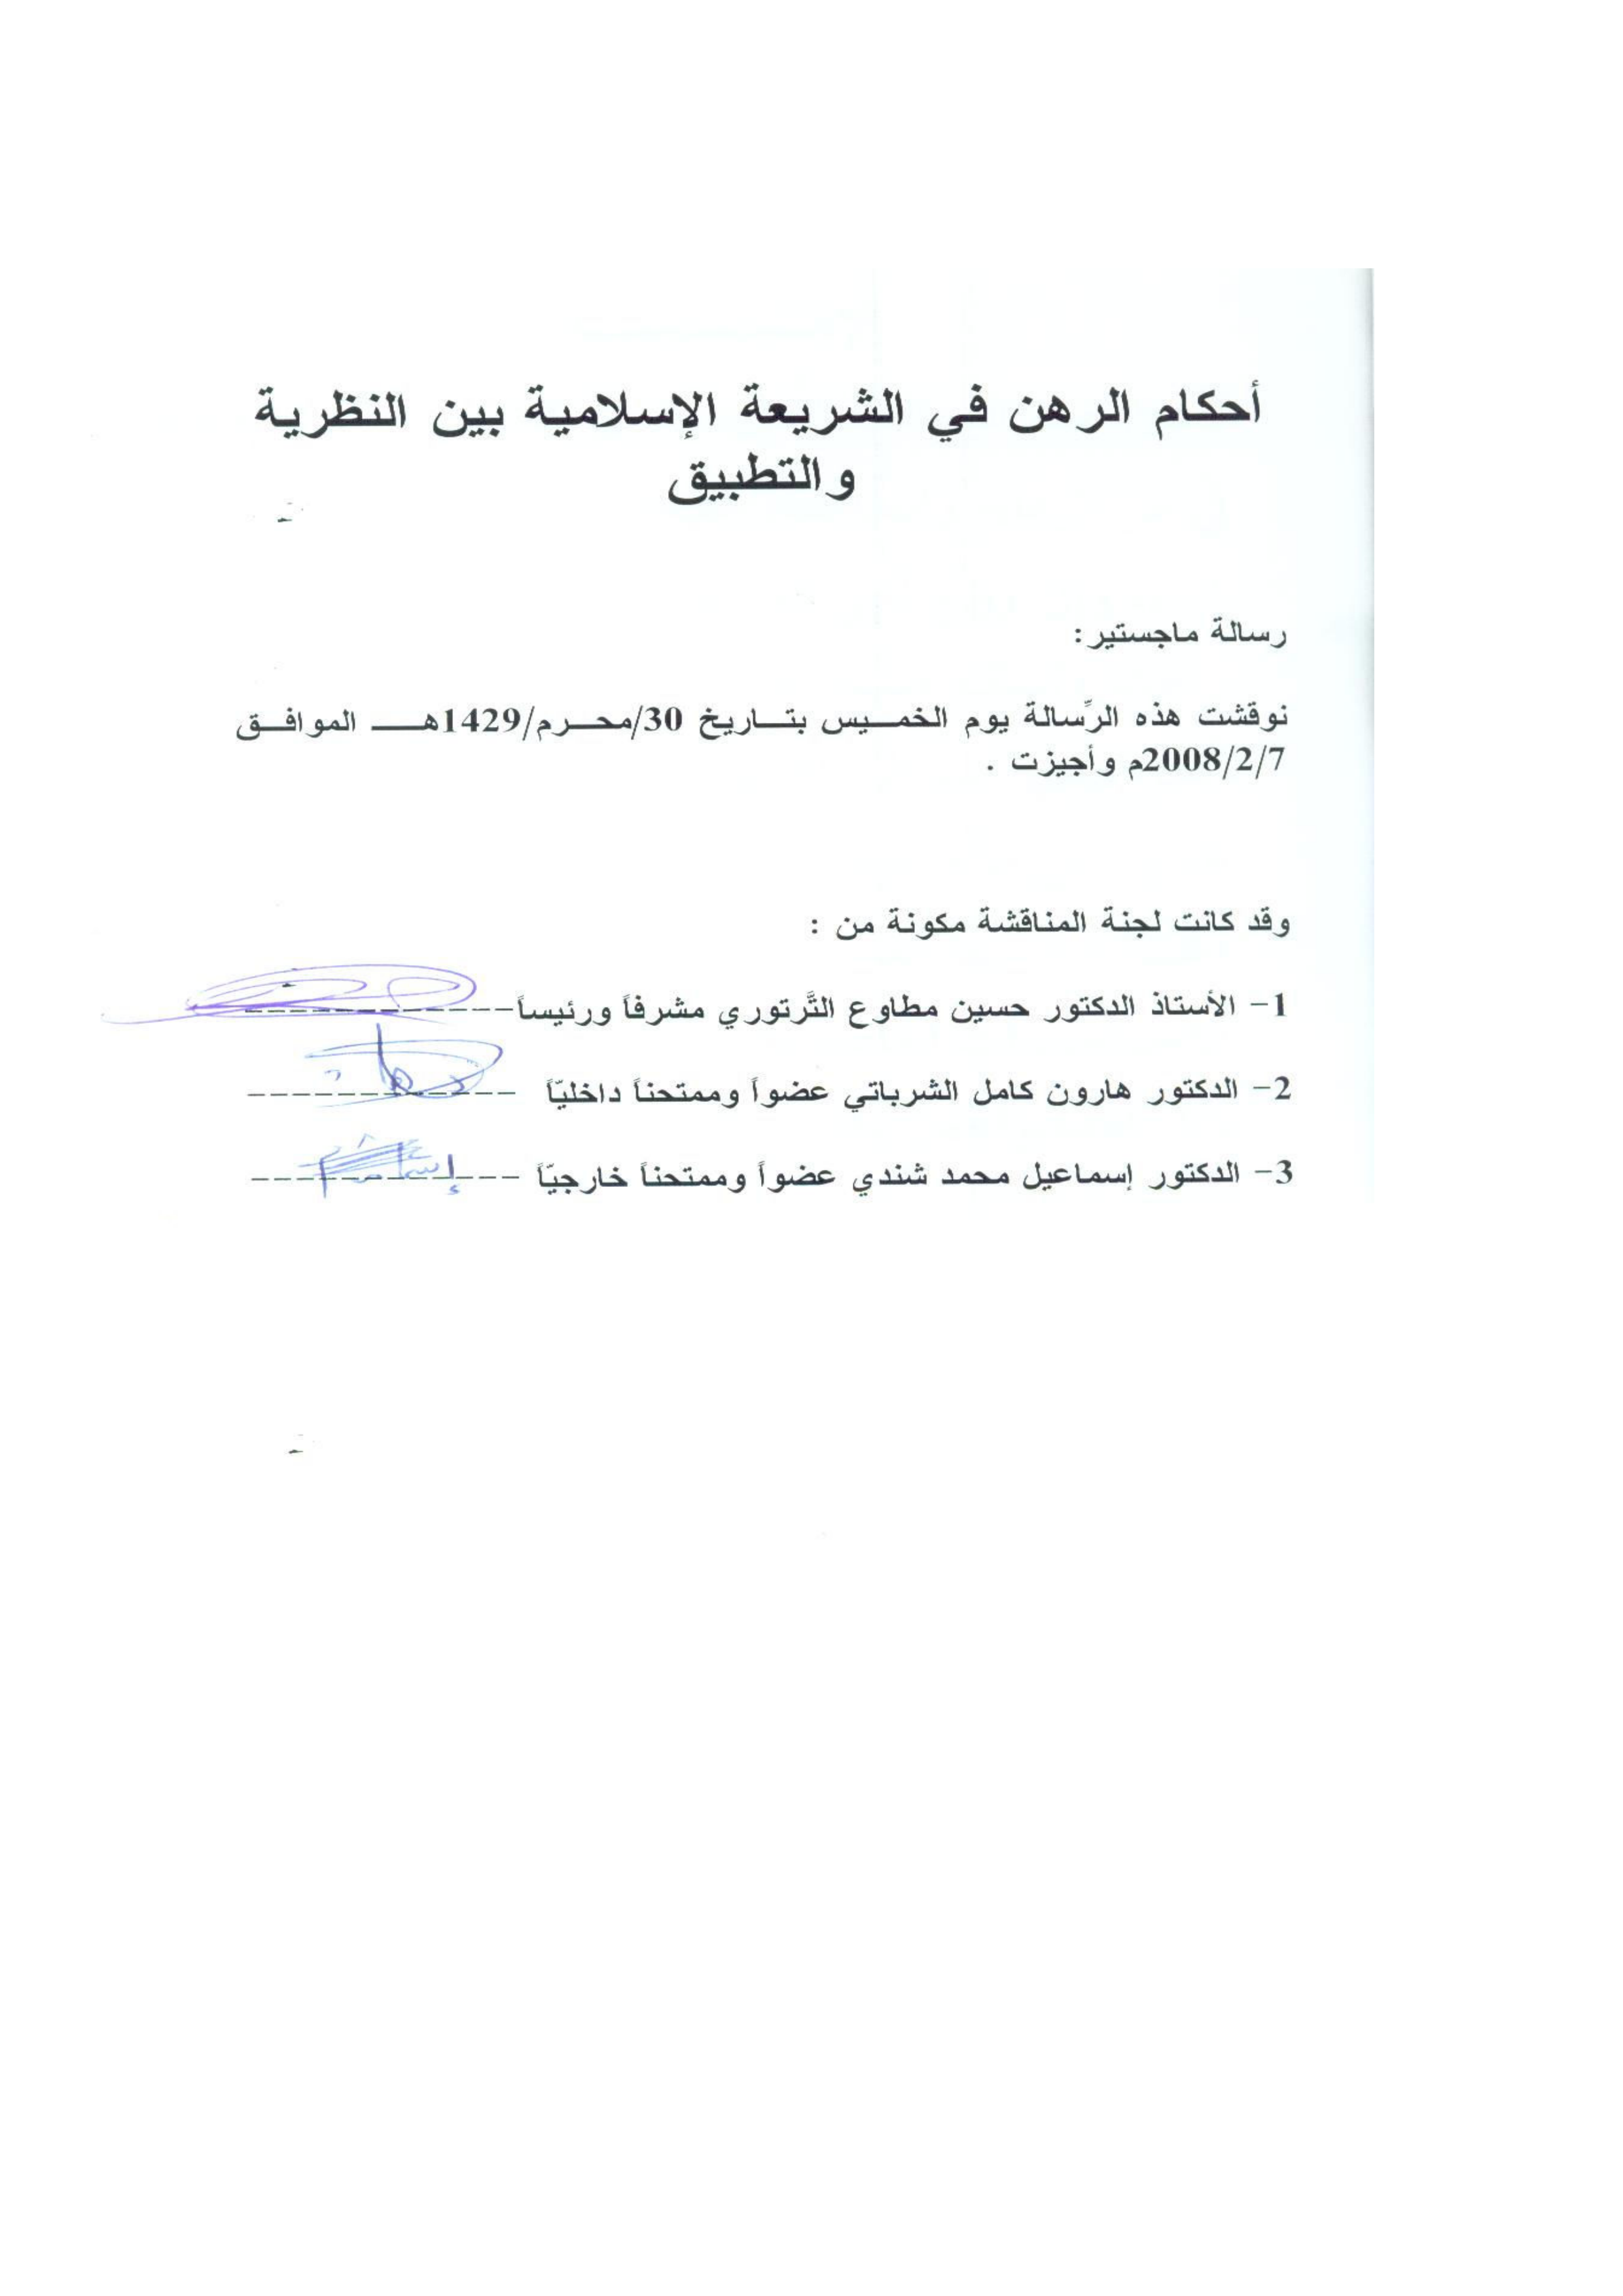 أحكام الرهن في الشريعة الإسلامية بين النظرية
والتطبيق
رسالة ماجستير:
نوقشت هذه الرِّسالة يوم الخمـــيس بتـــاريخ 30/محـــرم/1429هـــ الموافـــق
2008/2/7م وأجيزت .
وقد كانت لجنة المناقشة مكونة من :
1- الأستاذ الدكتور حسين مطاوع التَّرتوري مشرفاً ورئيساً-------------
2- الدكتور هارون كامل الشرباتي عضواً وممتحناً داخليّاً -------------
3- الدكتور إسماعيل محمد شندي عضواً وممتحناً خارجيّاً -------------